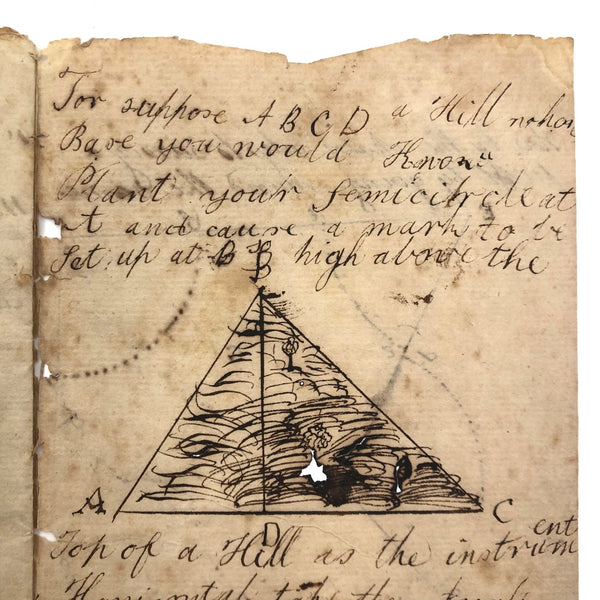 For suppose A B C D a Hill whose
Base you would Know
Plant your Semicircle at
A and cause a mark to be
Set up at B B high above the
B
A
C
D
Top of a Hill as the instrument
Horizontal take the